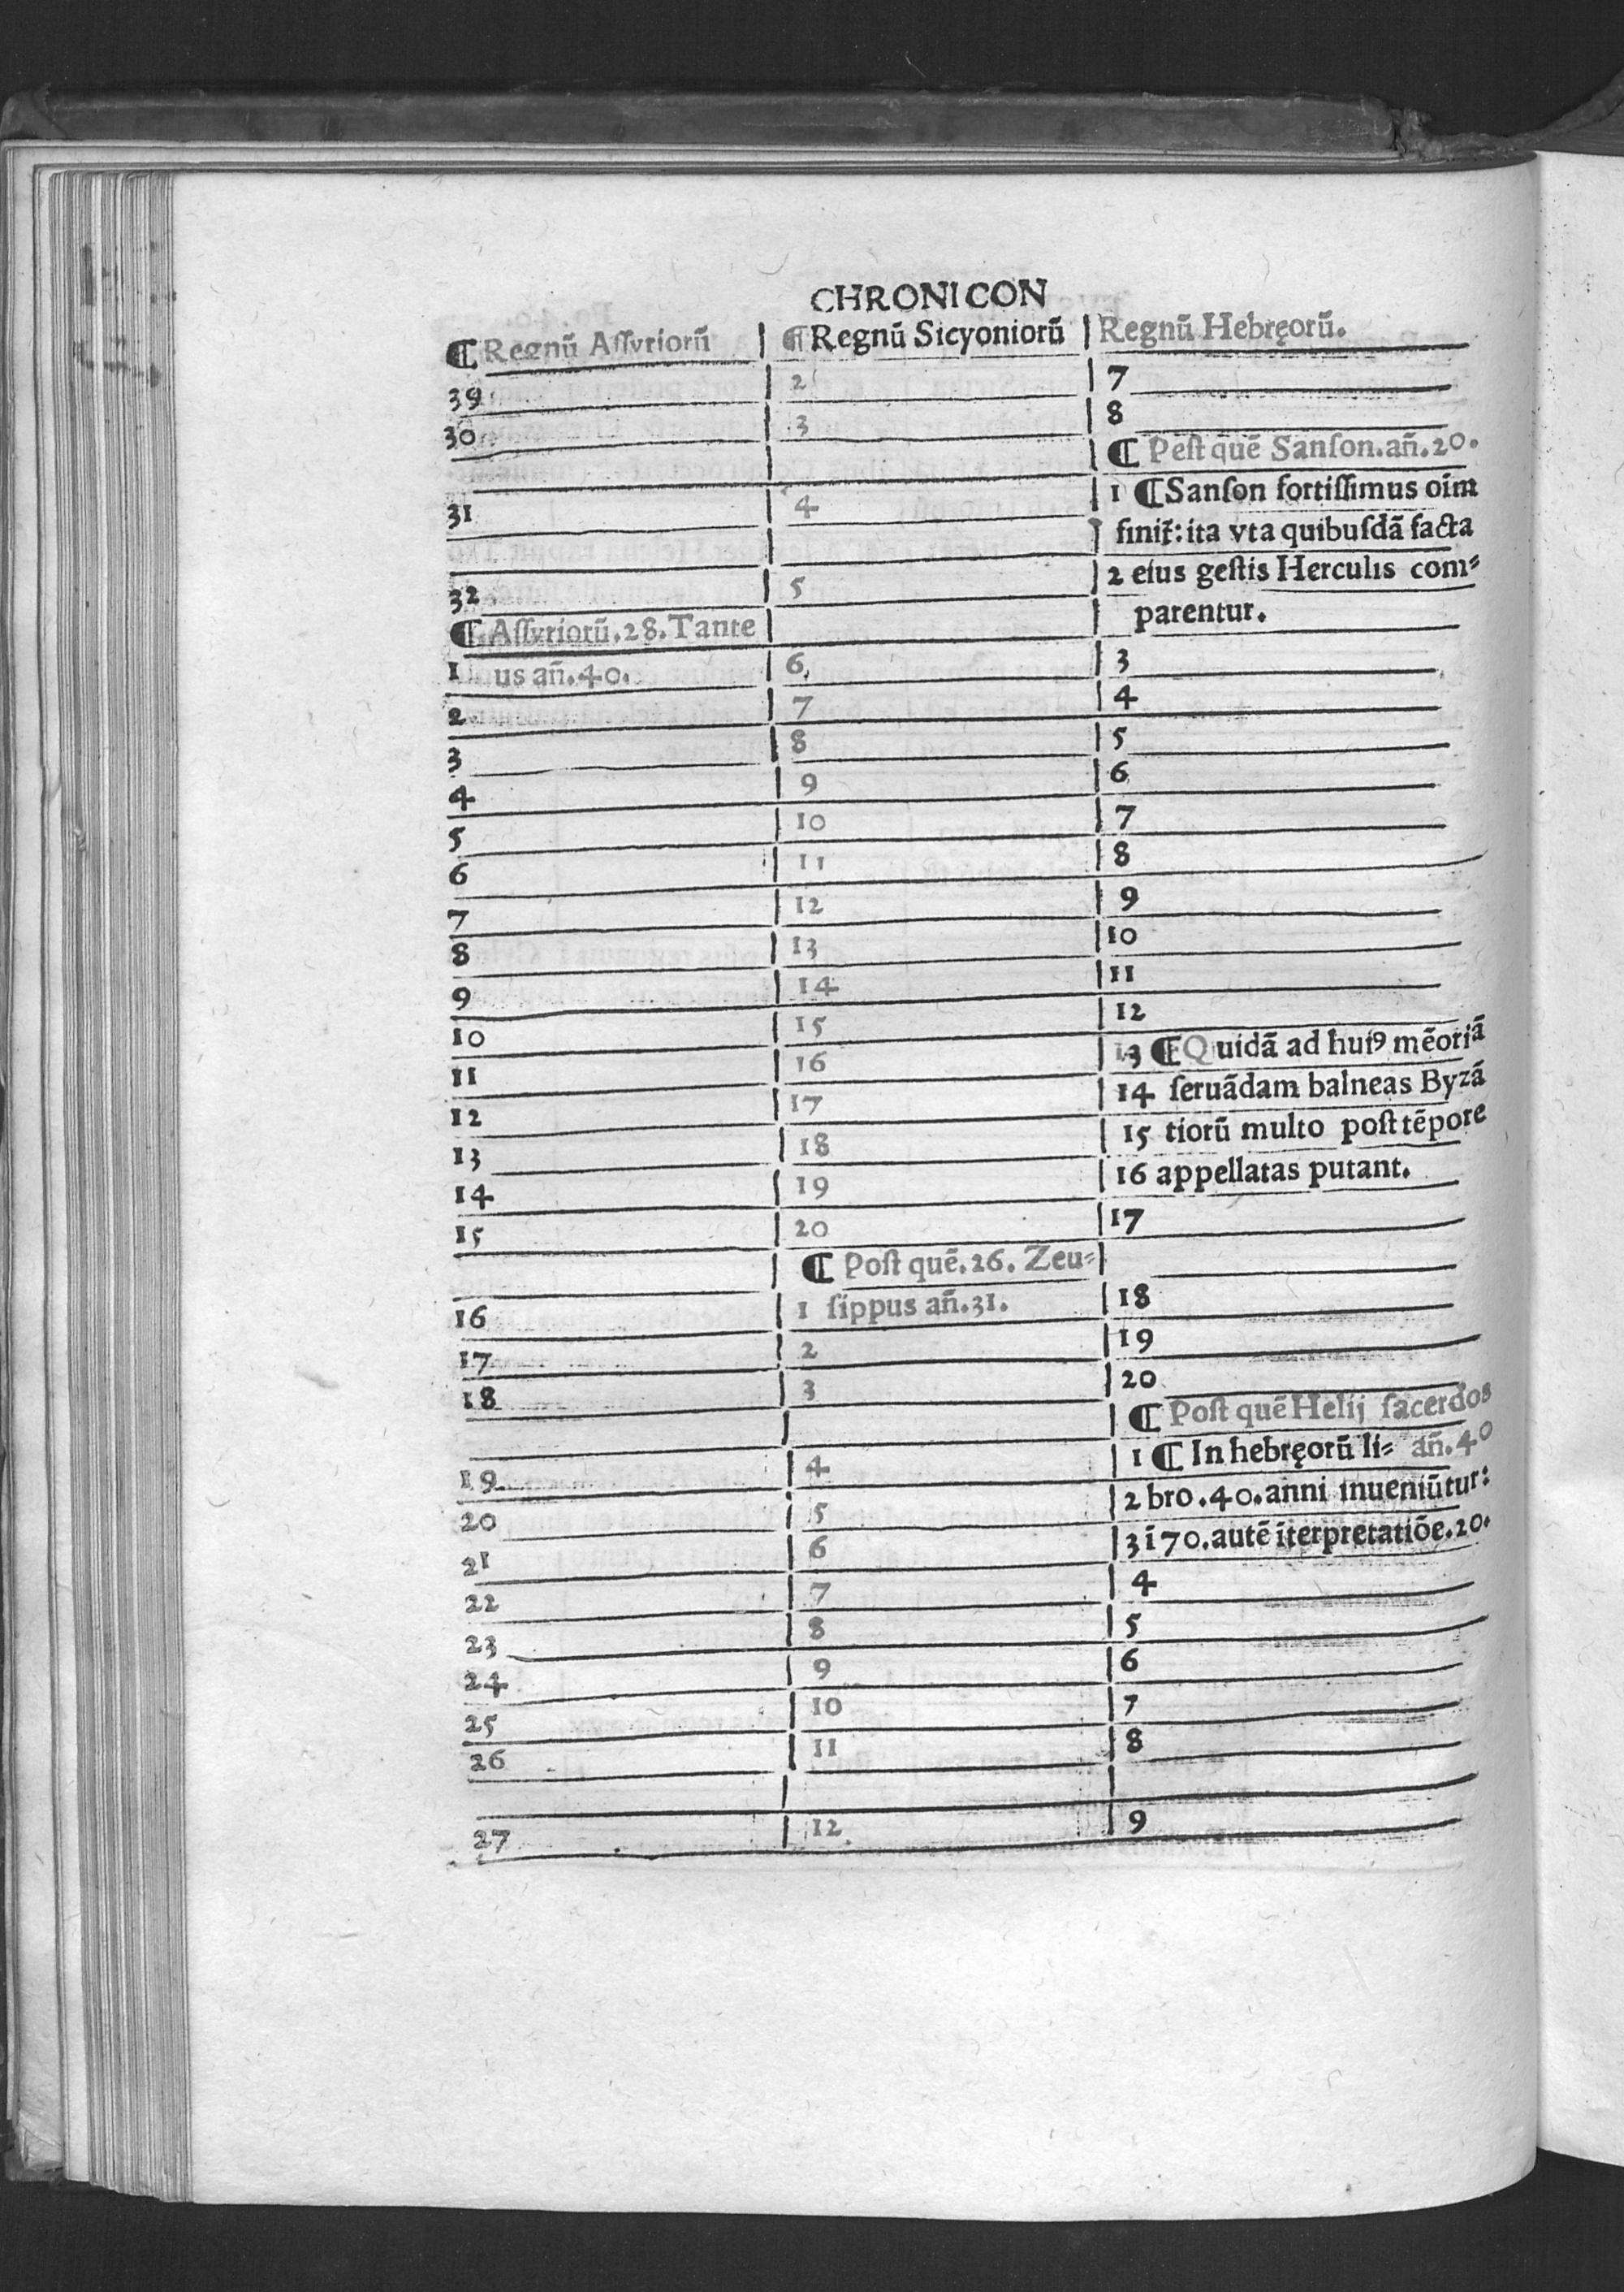 CHRONICON
¶ Regnū Aſſyriorū | ¶ Regnū Sicyoniorū | Regnū Hebręorū.
39 | 2 | 7
30 | 3 | 8
¶ Peſt quē Sanſon.añ.20.
31 | 4 | 1 ¶ Sanſon fortiſſimus oīm
finit̄: ita vta quibuſdā facta
32 | 5 | 2 eius geſtis Herculis com⸗
¶ Aſſyriorū.28.Tante | | parentur.
1 us añ.40. | 6 | 3
2 | 7 | 4
3 | 8 | 5
4 | 9 | 6
5 | 10 | 7
6 | 11 | 8
7 | 12 | 9
8 | 13 | 10
9 | 14 | 11
10 | 15 | 12
11 | 16 | 13 ¶ Quidā ad huiꝰ mēoriā
12 | 17 | 14 ſeruādam balneas Byzā
13 | 18 | 15 tiorū multo poſt tēpore
14 | 19 | 16 appellatas putant.
15 | 20 | 17
| ¶ Poſt quē.26. Zeu⸗ |
16 | 1 ſippus añ.31. | 18
17 | 2 | 19
18 | 3 | 20
¶ Poſt quē Helij ſacerdos
19 | 4 | 1 ¶ In hebręorū li⸗ añ.40
20 | 5 | 2 bro.40.anni inueniūtur:
21 | 6 | 3 ī 70.autē īterpretatiōe.20.
22 | 7 | 4
23 | 8 | 5
24 | 9 | 6
25 | 10 | 7
26 | 11 | 8
27 | 12 | 9